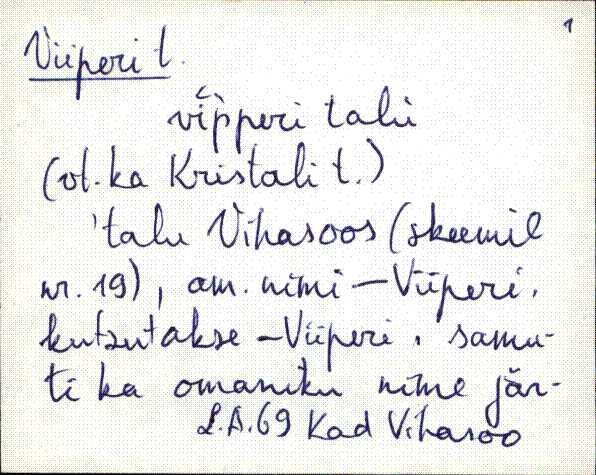 1
Viiperi t.
vìpperi talu
(vt. ka Kristali t.)
'talu Vihasoos (skeemil
nr. 19), am. nimi – Viiperi.
kutsutakse – Viiperi, samu-
ti ka omaniku nime jär-
L.A.69 Kad Vihasoo